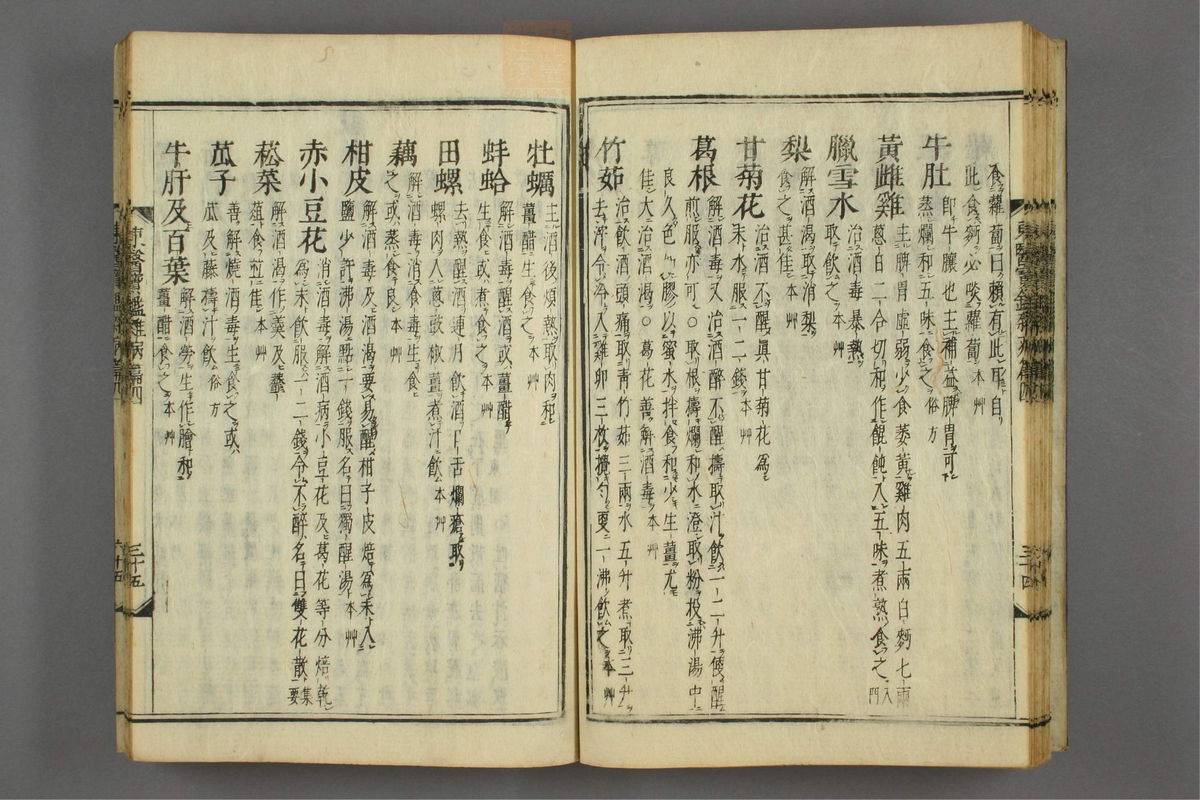 食蘿蔔曰賴有此耳自
此食麪必啖蘿蔔本艸
牛肚
即牛膍也主補益脾胃可
蒸爛和五味食之俗方
黃雌雞
主脾胃虛弱少食萎黃雞肉五兩白麪七兩
葱白二合切和作餛飩入五味煮熟食之入門
臘雪水
治酒毒暴熱
取飲之本艸
梨
解酒渴取消梨
食之甚佳本艸
甘菊花
治酒不醒眞甘菊花爲
末水服一二錢本艸
葛根
解酒毒又治酒醉不醒擣取汁飮一二升便醒
煎服亦可○取根擣爛和水澄取粉投沸湯中
良久色如膠以蜜水拌食和少生薑尤
佳大治酒渴○葛花善解酒毒本艸
竹茹
治飮酒頭痛取靑竹茹三兩水五升煮取三升
去滓令冷入雞卵三枚攪勻更一沸飮之本艸
牡蠣
主酒後煩熱取肉和
薑醋生食之本艸
蚌蛤
解酒毒醒酒或薑醋
生食或煮食之本艸
田螺
去熱醒酒連月飮酒口舌爛瘡取
螺肉入葱豉椒薑煮汁飮本艸
藕
解酒毒消食毒生食
之或蒸食良本艸
柑皮
解酒毒及酒渴要易醒柑子皮焙爲末入
鹽少許沸湯點一錢服名曰獨醒湯本艸
赤小豆花
消酒毒解酒病小豆花及葛花等分焙乾
爲末飮服一二錢令不醉名曰雙花散集要
菘菜
解酒渴作羹及虀
葅食並佳本艸
苽子
善解燒酒毒生食之或
苽及藤擣汁飮俗方
牛肝及百葉
解酒勞生作膾和
薑醋食之本艸
三十四
三十五